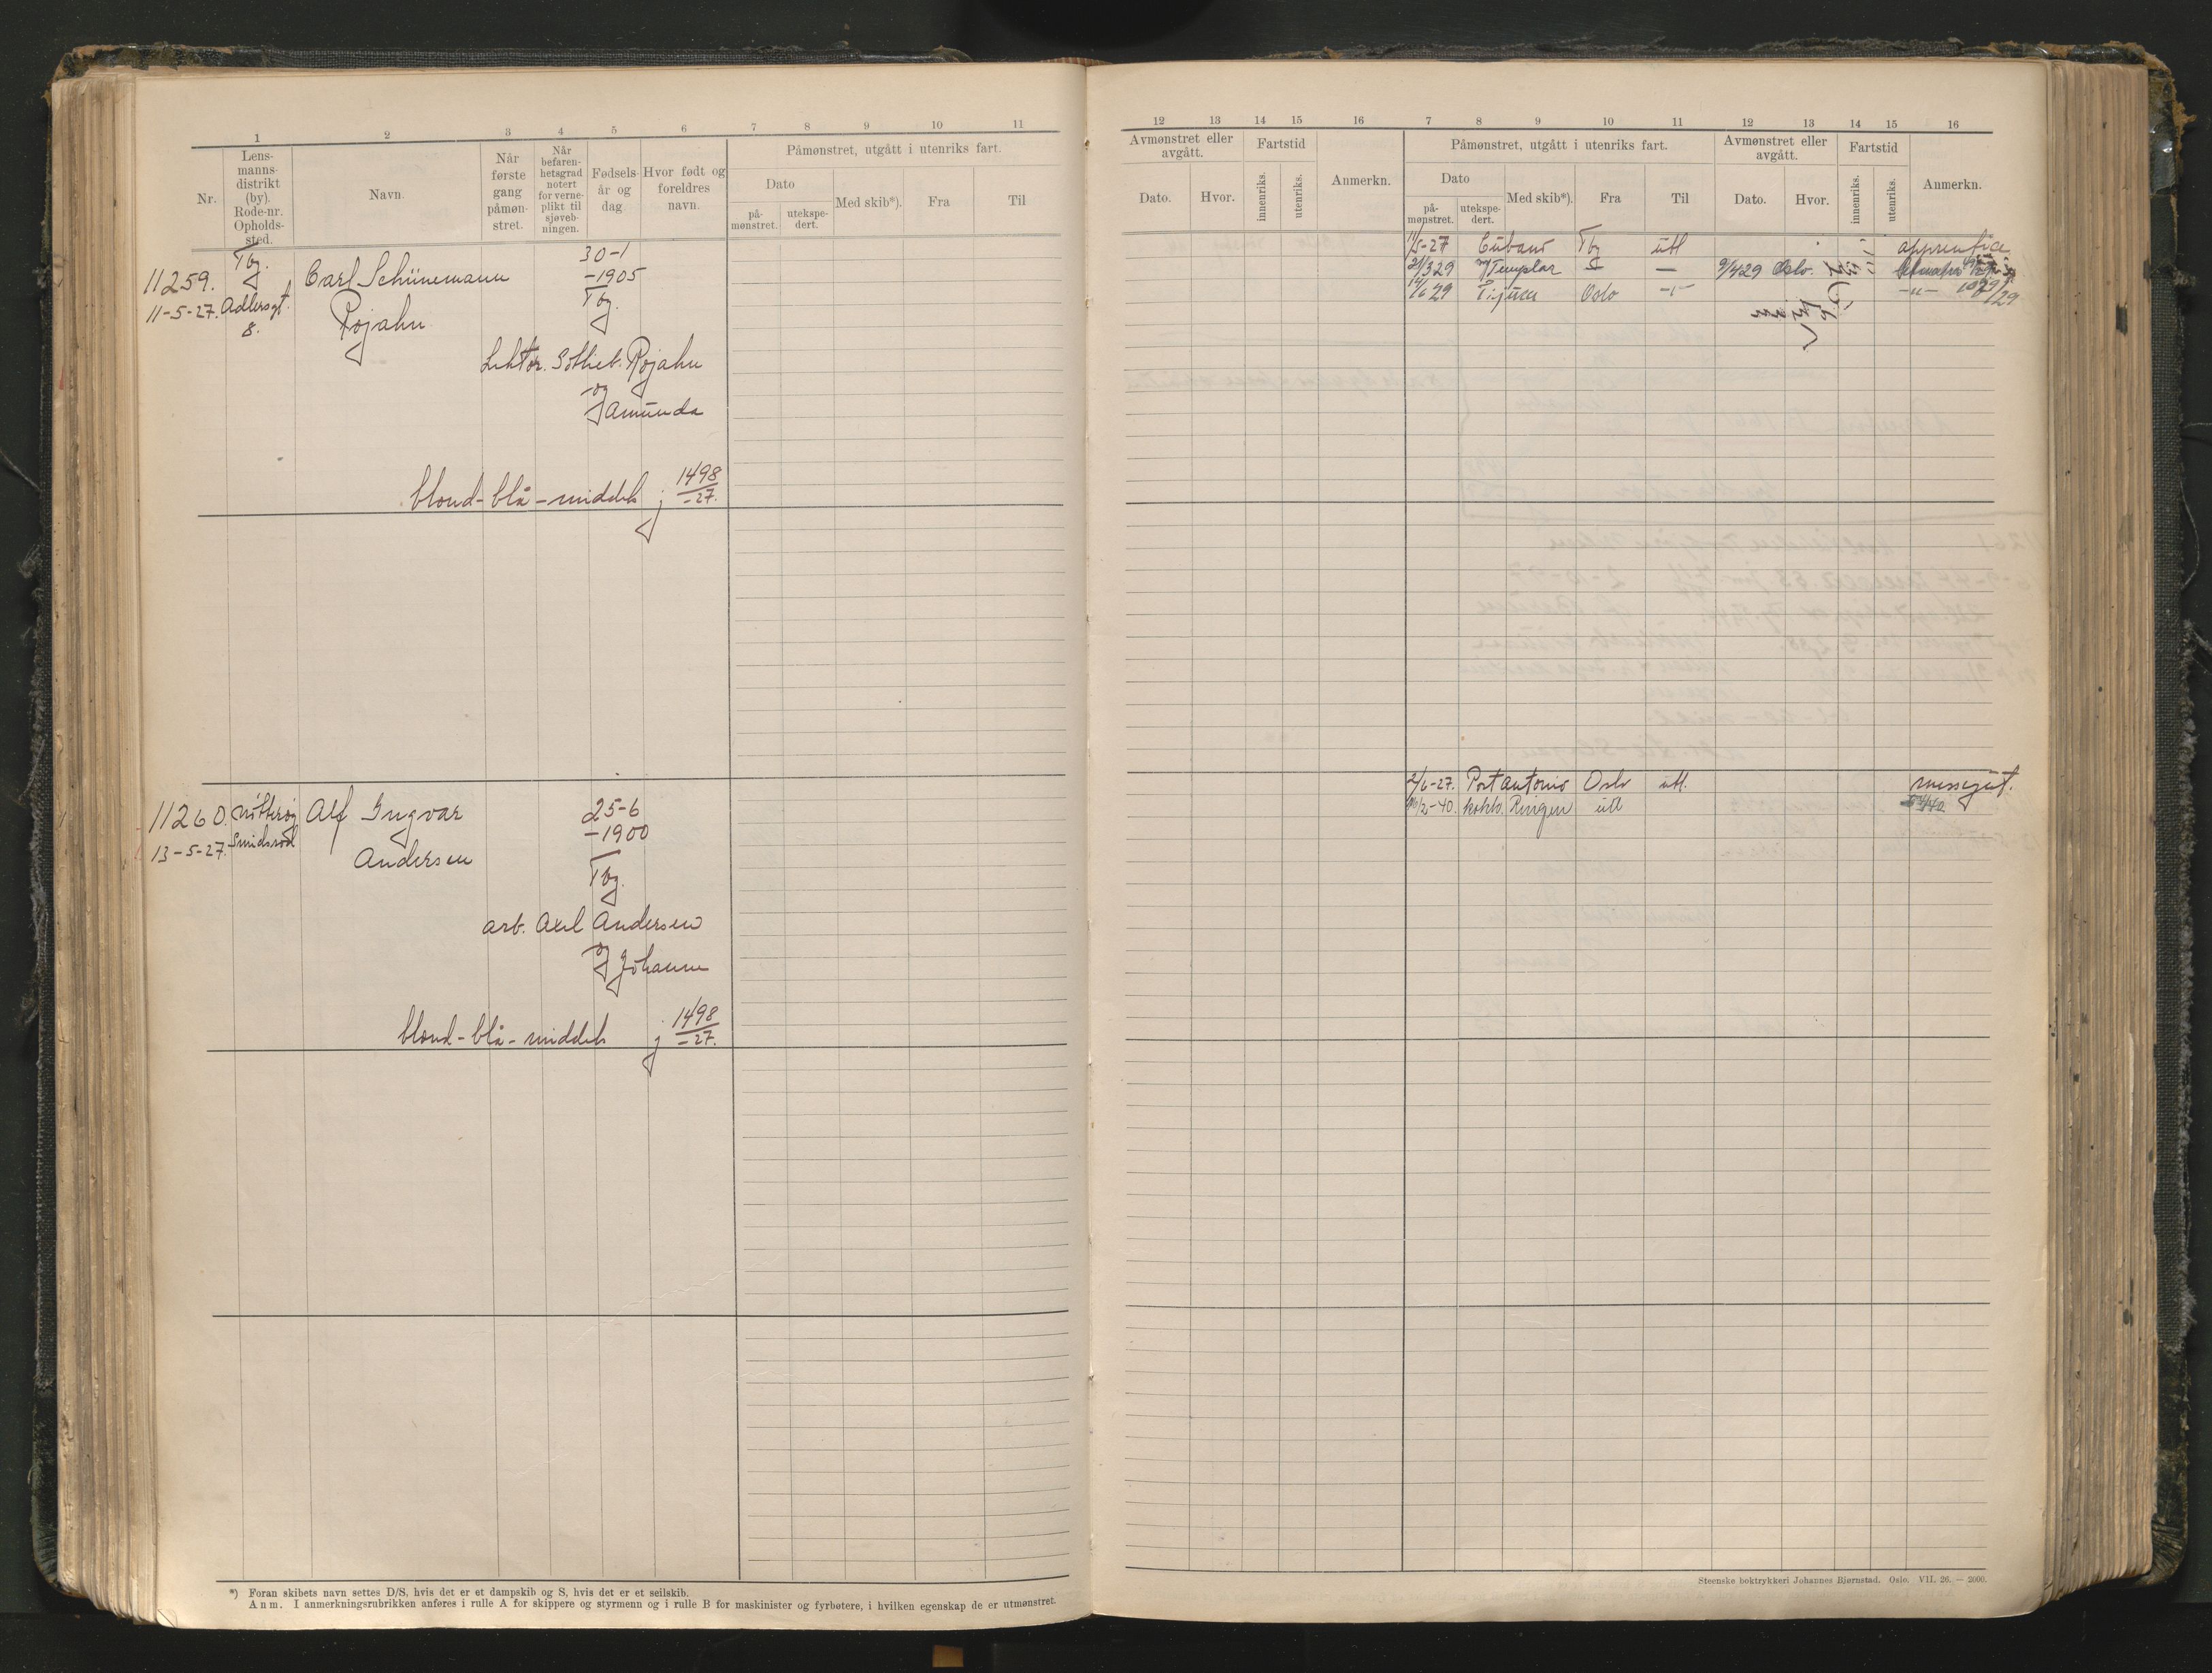 1 2 3 4 5 6 7 8 9 10 11
Nr.
Lens-
manns-
distrikt
(by).
Rode-nr.
Opholds-
sted.
Navn.
Når
første
gang
påmøn-
stret.
Når
befaren-
hetsgrad
notert
for verne-
plikt til
sjøveb-
ningen.
Fødsels-
år og
dag
Hvor født og
foreldres
navn.
Påmønstret, utgått i utenriks fart.
Dato
på-
mønstret.
utekspe-
dert.
Med skib*).
Fra
Til
Tbg.
11259.
11-5-27.
Adlersgt.
8.
Carl Schünemann
Rojahn
30-1
-1905
Tbg.
Lektor. Gottlieb. Rojahn
og
Amunda
blond-blå-middels j 1498
-27.
11260.
13-5-27.
Nötteröy
Smidsrød
Alf Ingvar
Andersen
25-6
-1900
Tbg.
arb. Axel Andersen
og
Johanne
blond-blå-middels j 1498
-27.
*) Foran skibets navn settes D/S, hvis det er et dampskib og S, hvis det er et seilskib.
Anm. I anmerkningsrubrikken anføres i rulle A for skippere og styrmenn og i rulle B for maskinister og fyrbøtere, i hvilken egenskap de er utmønstret.
12 13 14 15 16 7 8 9 10 11 12 13 14 15 16
Avmønstret eller
avgått.
Dato.
Hvor.
Fartstid
innenriks.
utenriks.
Anmerkn.
Påmønstret, utgått i utenriks fart.
Dato
på-
mønstret.
utekspe-
dert.
Med skib*).
Fra
Til
Avmønstret eller
avgått.
Dato.
Hvor.
Fartstid
innenriks.
utenriks.
Anmerkn.
11/5-27 Cubano Tbg utl apprentice
21/3 29 Templar — 9/4 29 Oslo.
14/6 29 Tijuca Oslo -"-
2/6-27. Port Antonio Oslo utl. messegut.
/2-40. kokk. Ringen utl
Steenske boktrykkeri Johannes Bjørnstad. Oslo. VII. 26. — 2000.